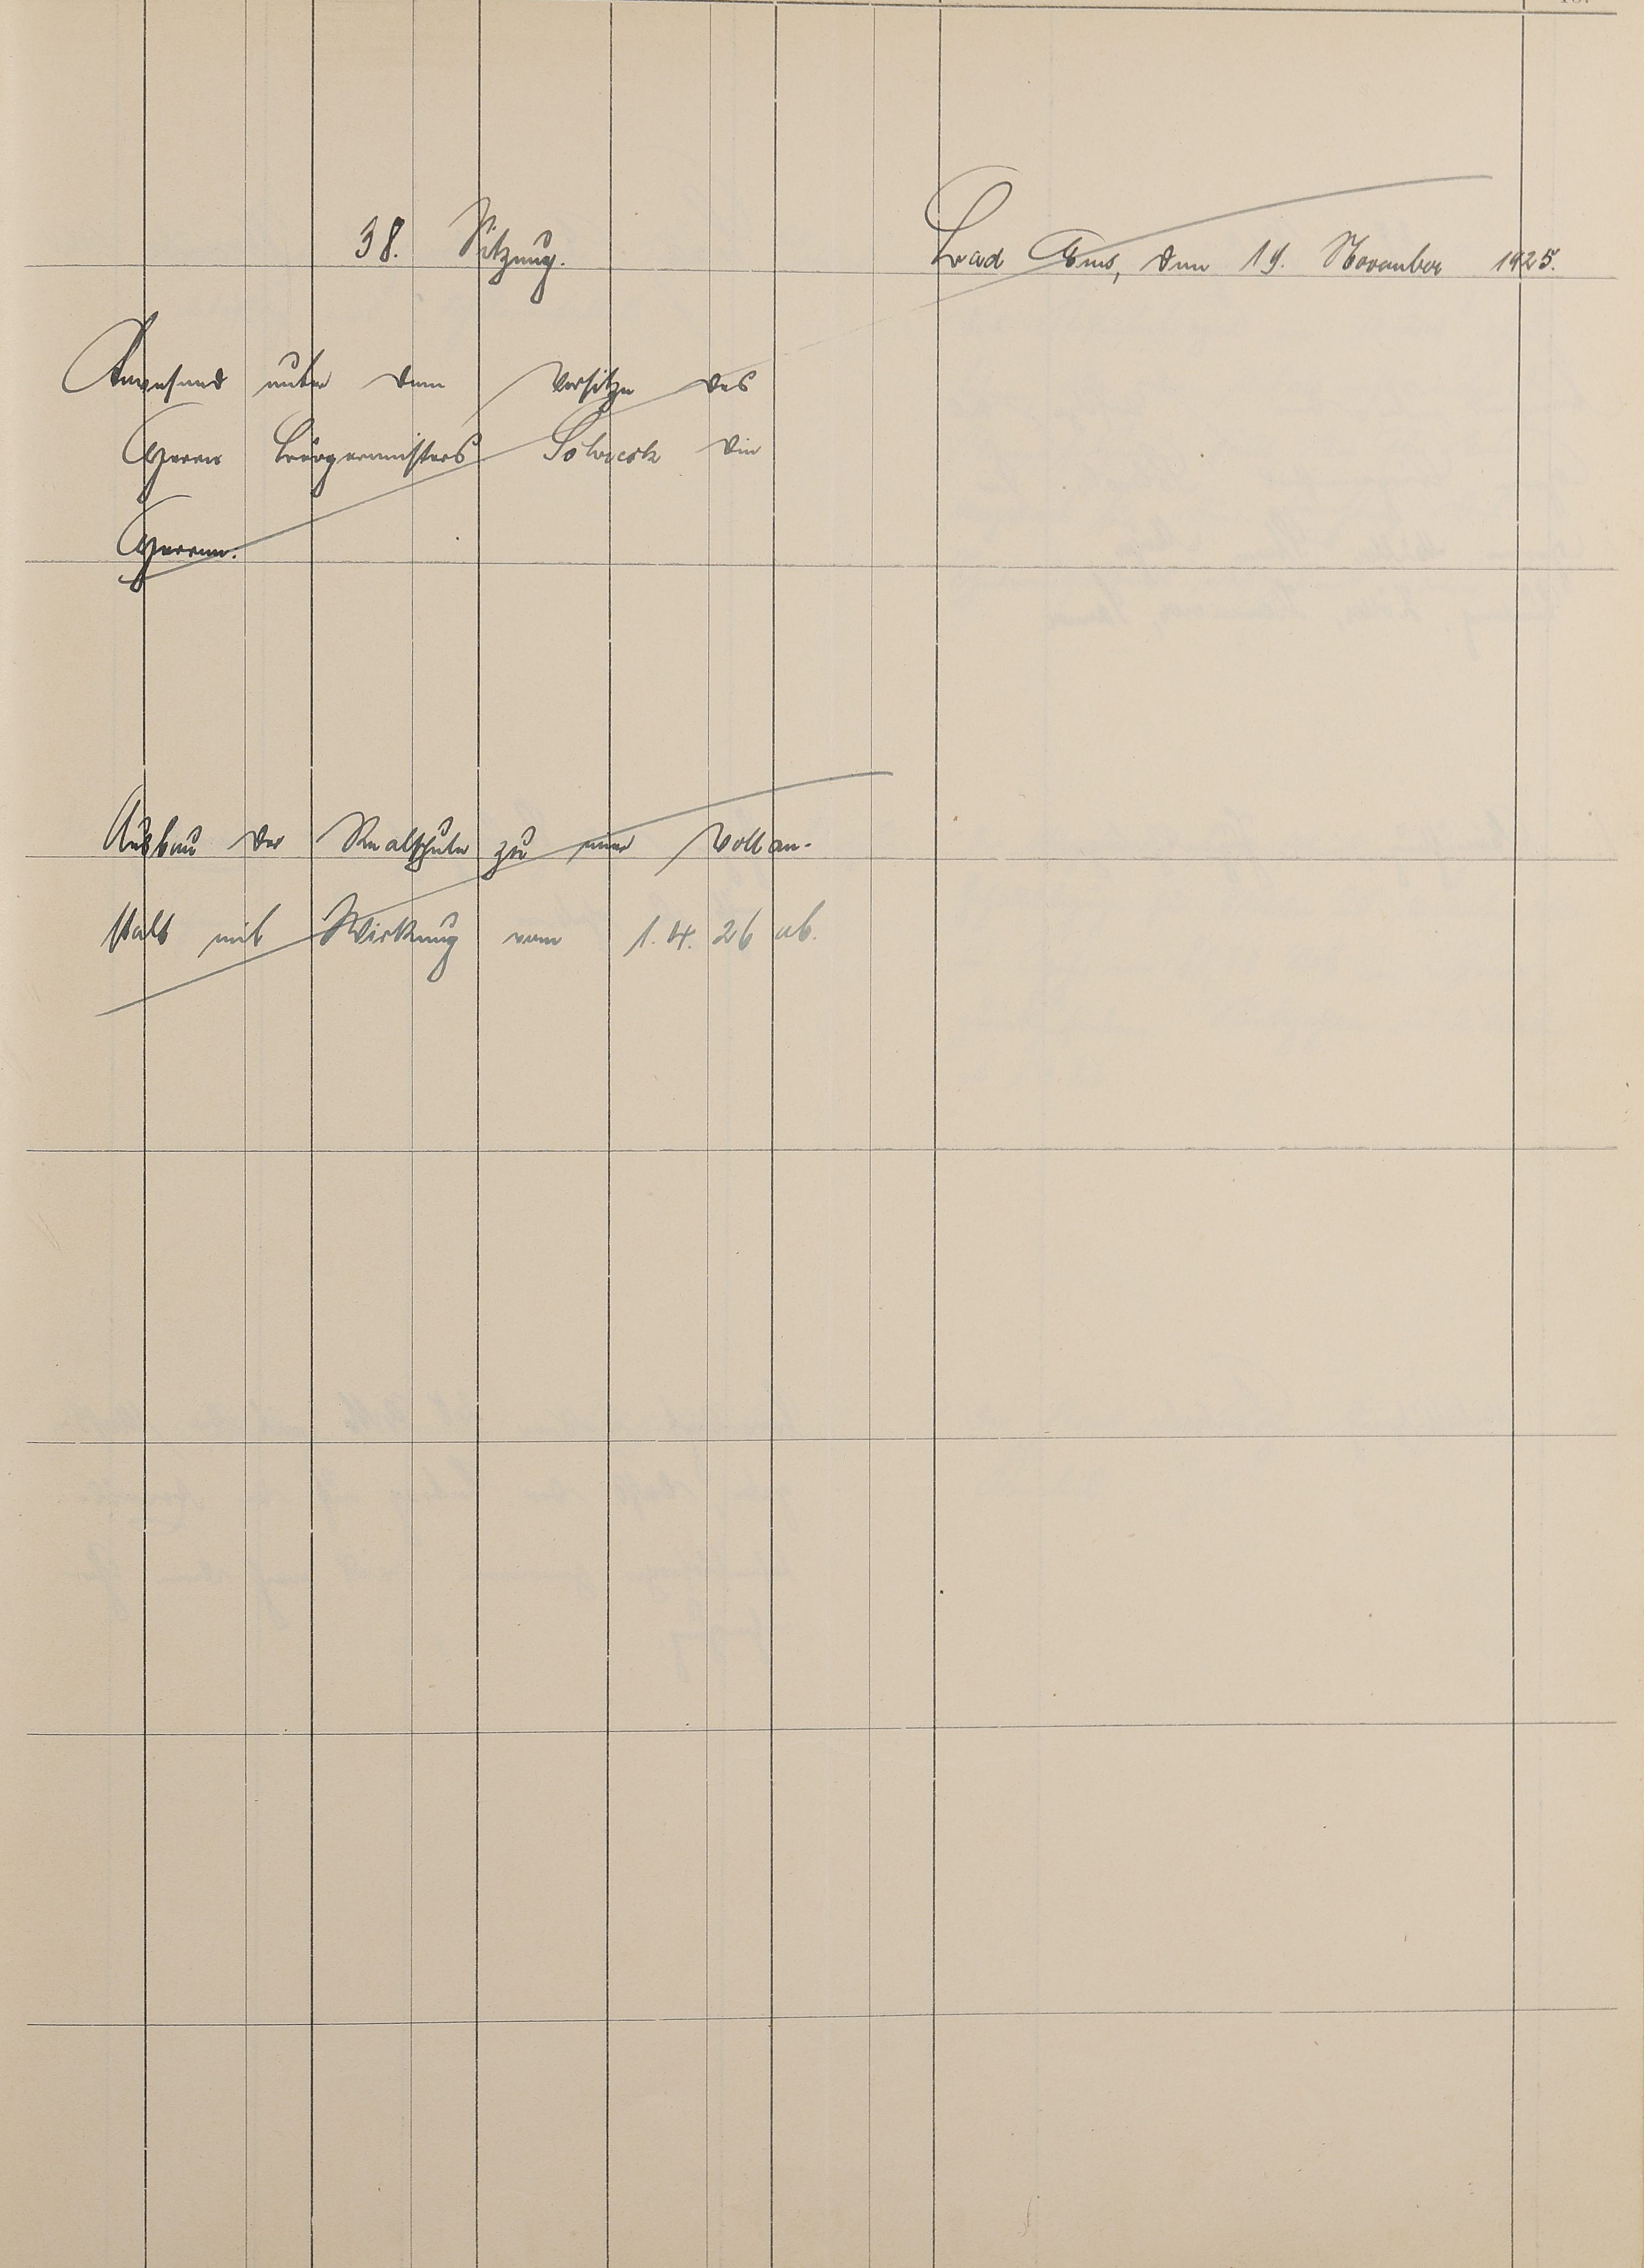 38. Sitzung.
Bad Ems, den 19. November 1925.
Anwesend unter dem Vorsitze des
Herrn Bürgermeisters die
Herren:
Ausbau der Realschule zu einer Vollan-
stalt mit Wirkung vom 1.4.26 ab.